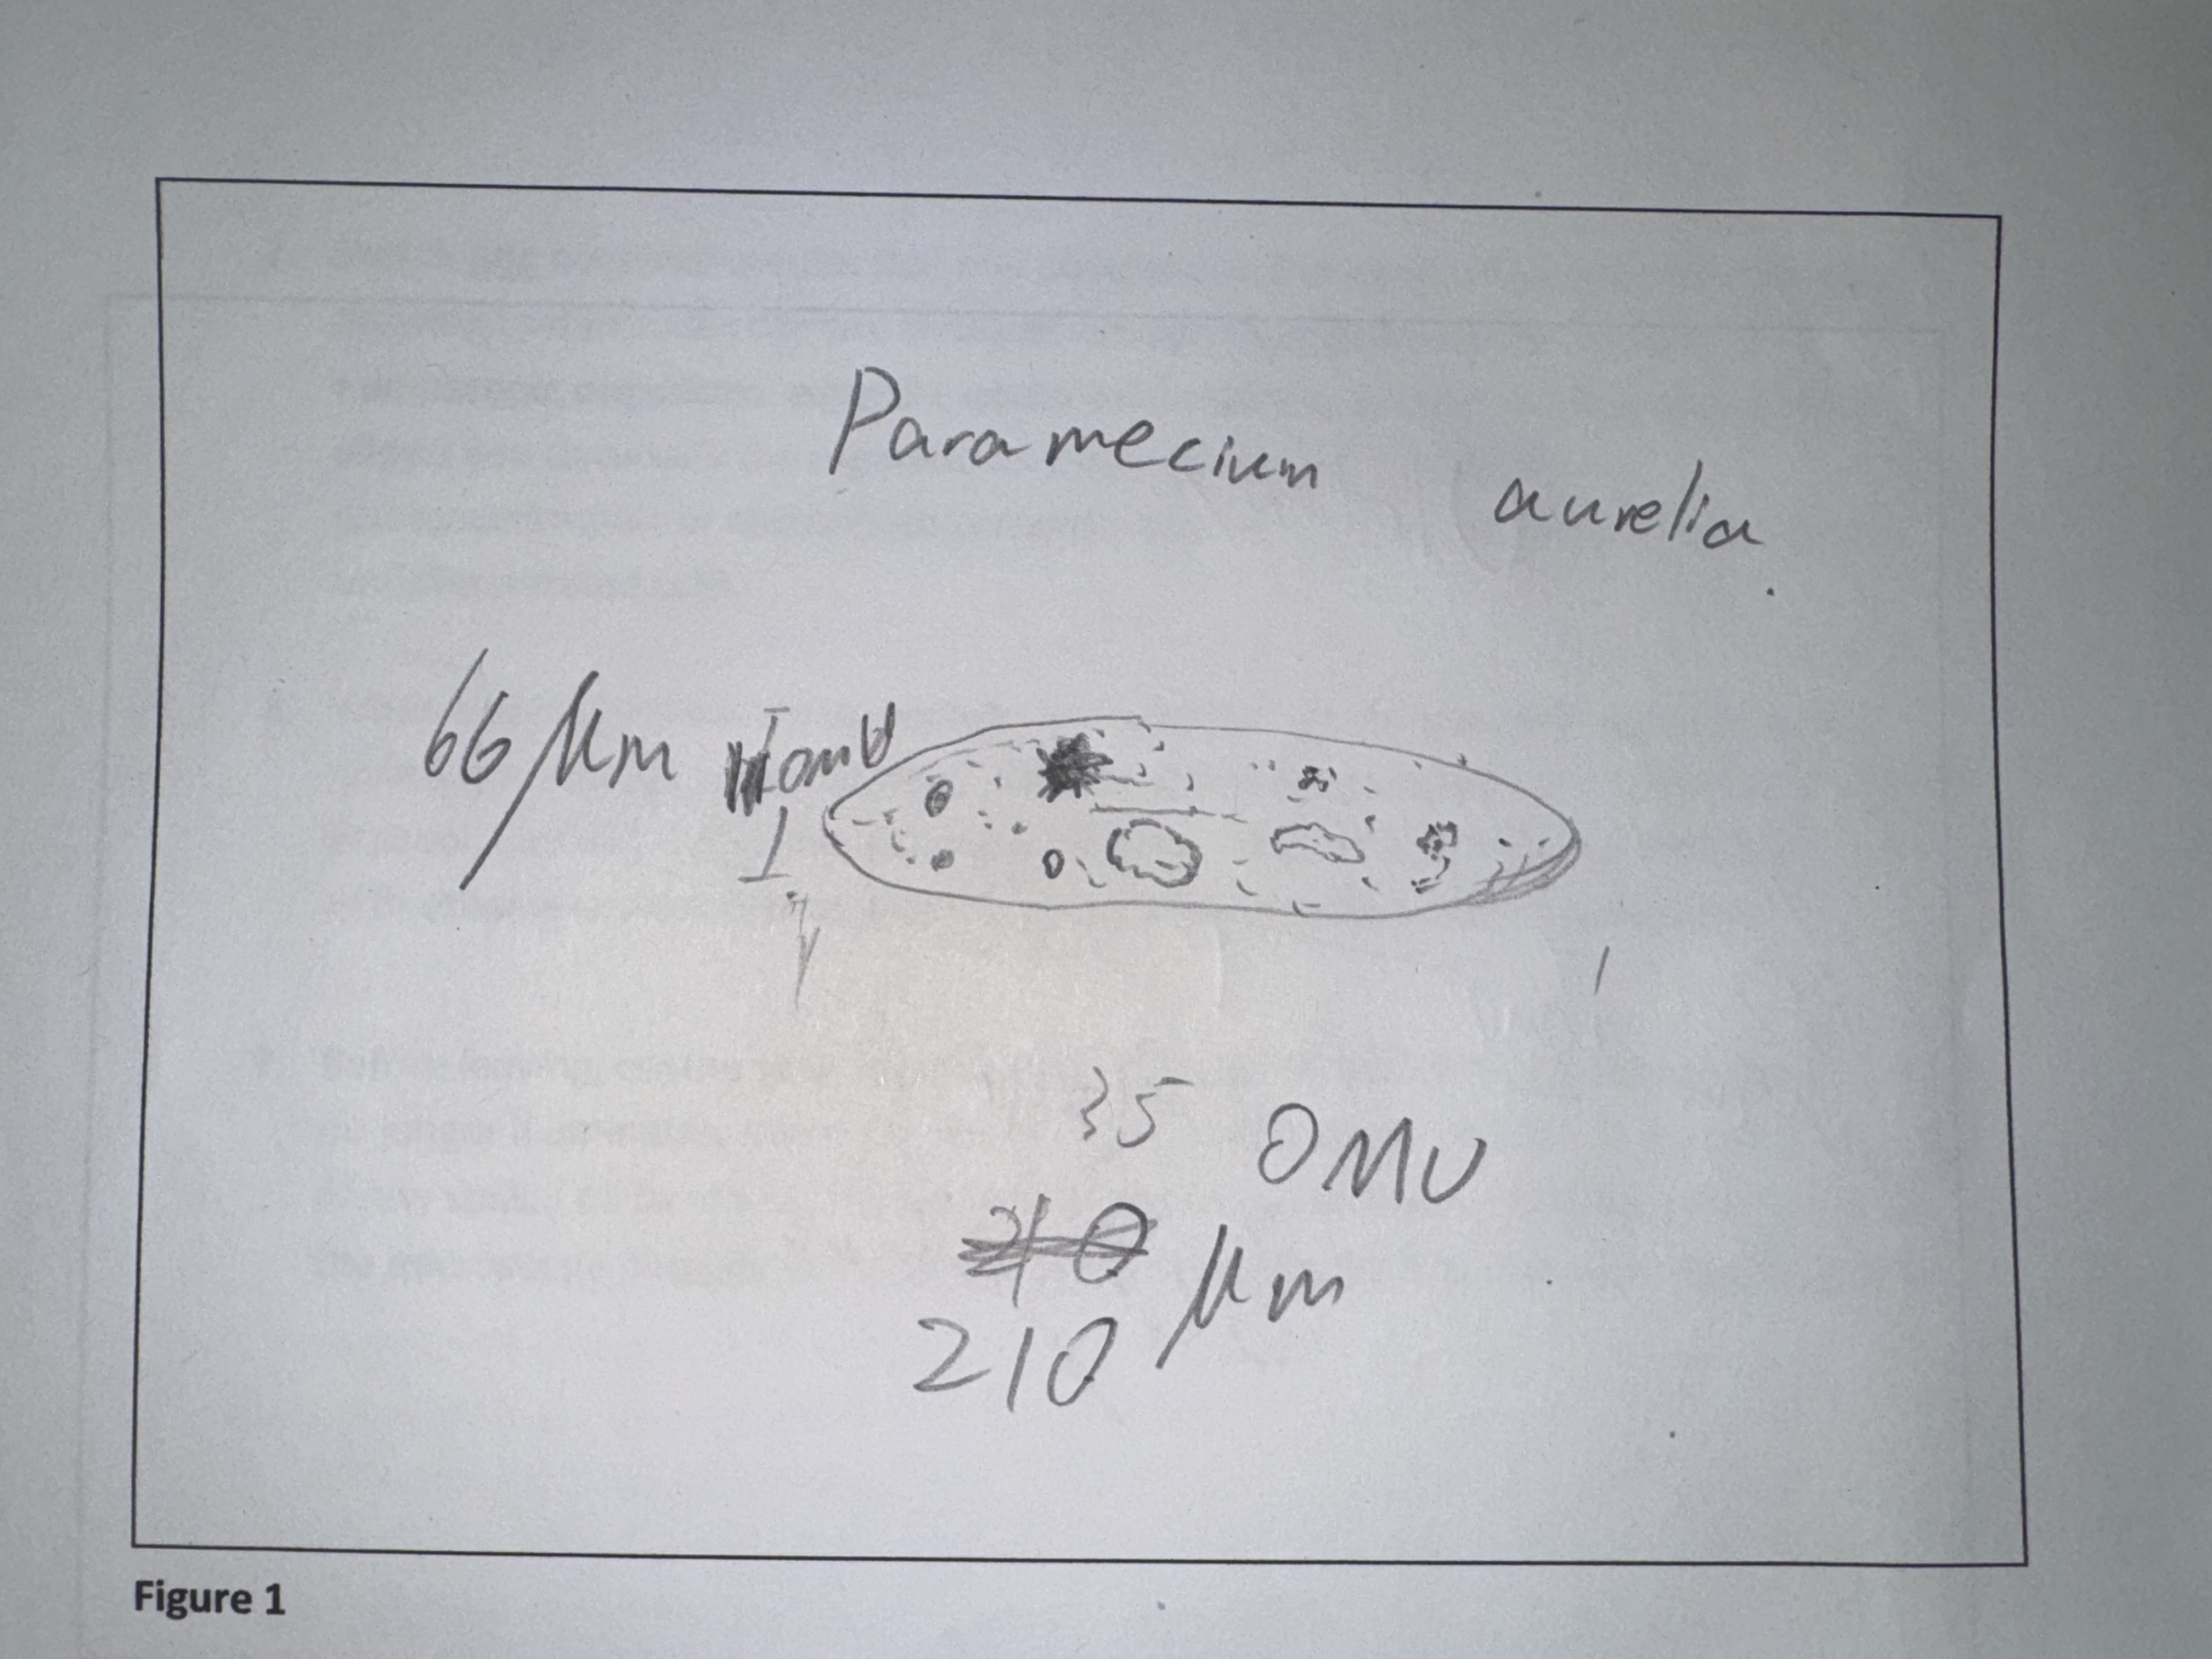 Paramecium aurelia
66 μm
35 OMU
μm
210
Figure 1